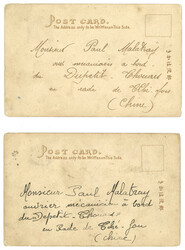 POST CARD.
The Address only to be Written on this Side.
Monsieur Paul Malateay
à bord
du Dupetit Thouars
en rade de Tché-fou
(Chine)
POST CARD.
The Address only to be Written on this Side.
Monsieur Paul Malateay
ouvrier mécanicien à bord
du Dupetit-Thouars
en Rade de Tché-fou
(Chine)